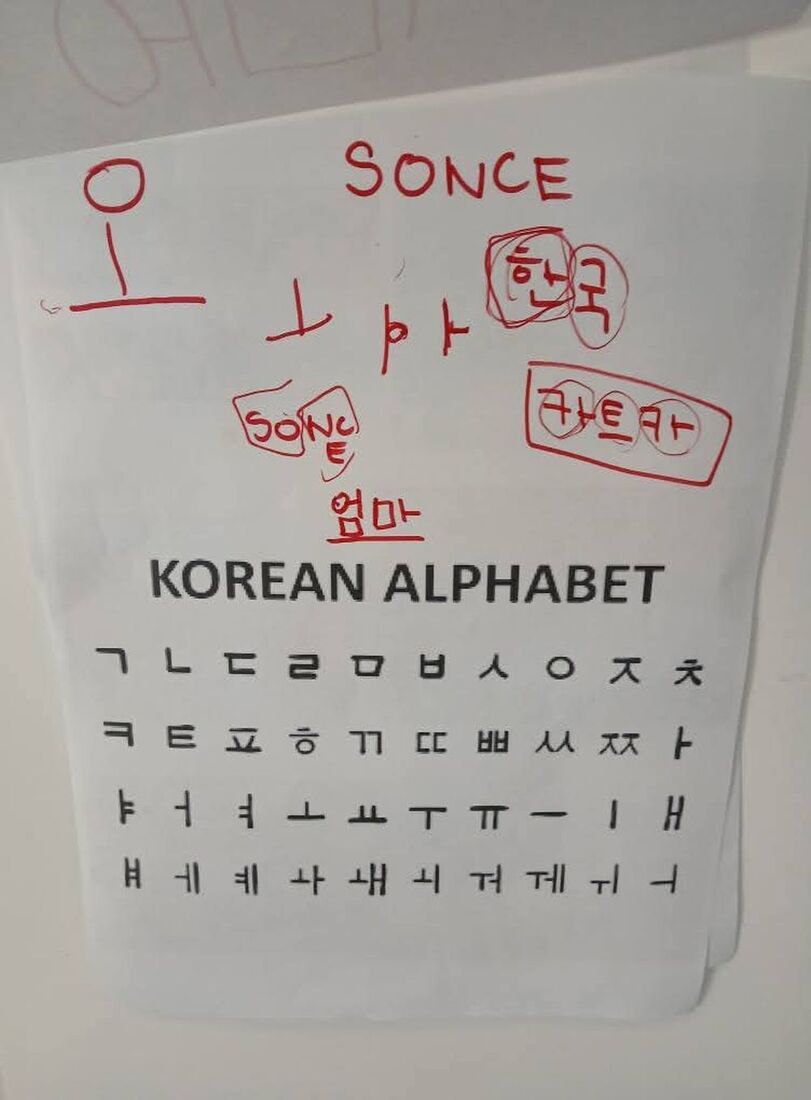 SONCE
ㅗ ㅏ 한국
SONCE
카트카
엄마
KOREAN ALPHABET
ㄱ ㄴ ㄷ ㄹ ㅁ ㅂ ㅅ ㅇ ㅈ ㅊ
ㅋ ㅌ ㅍ ㅎ ㄲ ㄸ ㅃ ㅆ ㅉ ㅏ
ㅑ ㅓ ㅕ ㅗ ㅛ ㅜ ㅠ ㅡ ㅣ ㅐ
ㅒ ㅔ ㅖ ㅘ ㅙ ㅚ ㅝ ㅞ ㅟ ㅢ